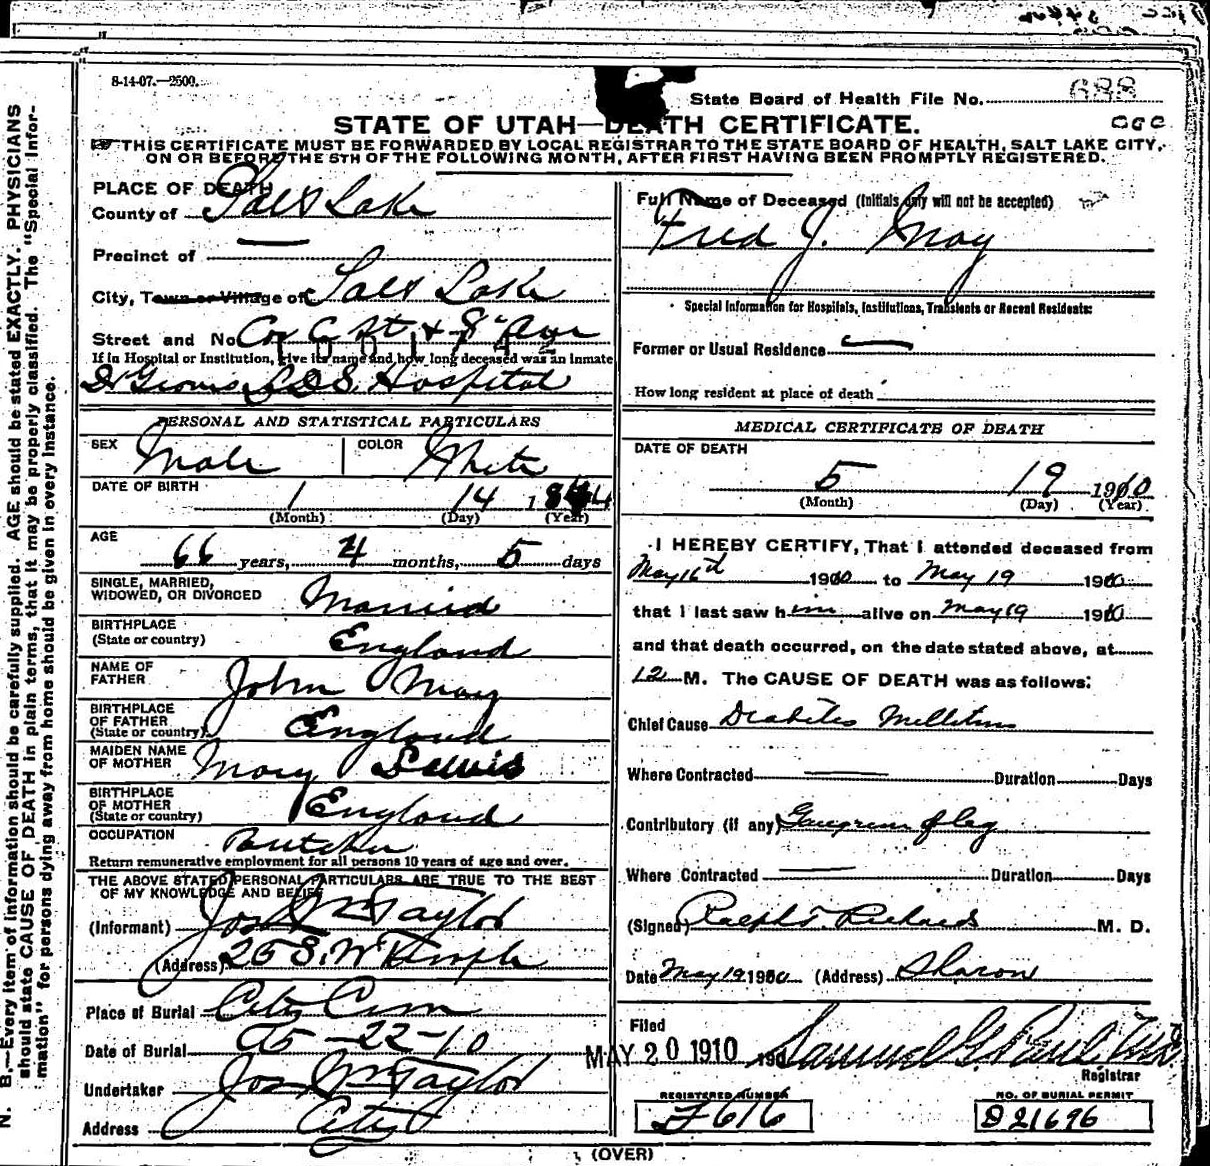 8-14-07.—2500.
State Board of Health File No. 688
STATE OF UTAH—DEATH CERTIFICATE.
THIS CERTIFICATE MUST BE FORWARDED BY LOCAL REGISTRAR TO THE STATE BOARD OF HEALTH, SALT LAKE CITY,
ON OR BEFORE THE 5TH OF THE FOLLOWING MONTH, AFTER FIRST HAVING BEEN PROMPTLY REGISTERED.
N. B.—Every item of information should be carefully supplied. AGE should be stated EXACTLY. PHYSICIANS
should state CAUSE OF DEATH in plain terms, that it may be properly classified. The "Special Infor-
mation" for persons dying away from home should be given in every instance.
PLACE OF DEATH
County of Salt Lake
Precinct of —
City, Town or Village of Salt Lake
Street and No. Cor C St & 8" Ave
If in Hospital or Institution, give its name and how long deceased was an inmate
L.D.S. Hospital
PERSONAL AND STATISTICAL PARTICULARS
SEX Male COLOR White
DATE OF BIRTH 1 14 1844
(Month) (Day) (Year)
AGE
66 years, 4 months, 5 days
SINGLE, MARRIED,
WIDOWED, OR DIVORCED Married
BIRTHPLACE
(State or country) England
NAME OF
FATHER John May
BIRTHPLACE
OF FATHER
(State or country) England
MAIDEN NAME
OF MOTHER Mary Lewis
BIRTHPLACE
OF MOTHER
(State or country) England
OCCUPATION Butcher
Return remunerative employment for all persons 10 years of age and over.
THE ABOVE STATED PERSONAL PARTICULARS ARE TRUE TO THE BEST
OF MY KNOWLEDGE AND BELIEF
(Informant) Jos Wm Taylor
(Address) 25 S. W Temple
Place of Burial City Cem
Date of Burial 05-22-10
Undertaker Jos Wm Taylor
Address City
Full Name of Deceased (Initials only will not be accepted)
Fred J. May
Special Information for Hospitals, Institutions, Transients or Recent Residents:
Former or Usual Residence —
How long resident at place of death
MEDICAL CERTIFICATE OF DEATH
DATE OF DEATH
5 19 1910
(Month) (Day) (Year)
I HEREBY CERTIFY, That I attended deceased from
May 16th 1910 to May 19 1910
that I last saw him alive on May 19 1910
and that death occurred, on the date stated above, at
12 M. The CAUSE OF DEATH was as follows:
Chief Cause Diabetes Mellitus
Where Contracted — Duration Days
Contributory (if any) Gangrene of leg
Where Contracted — Duration Days
(Signed) Ralph T. Richards M. D.
Date May 19 1910 (Address) Sharon
Filed
MAY 20 1910 190 Samuel G. Paul, M.D.
Registrar
REGISTERED NUMBER
F616
NO. OF BURIAL PERMIT
D21696
(OVER)